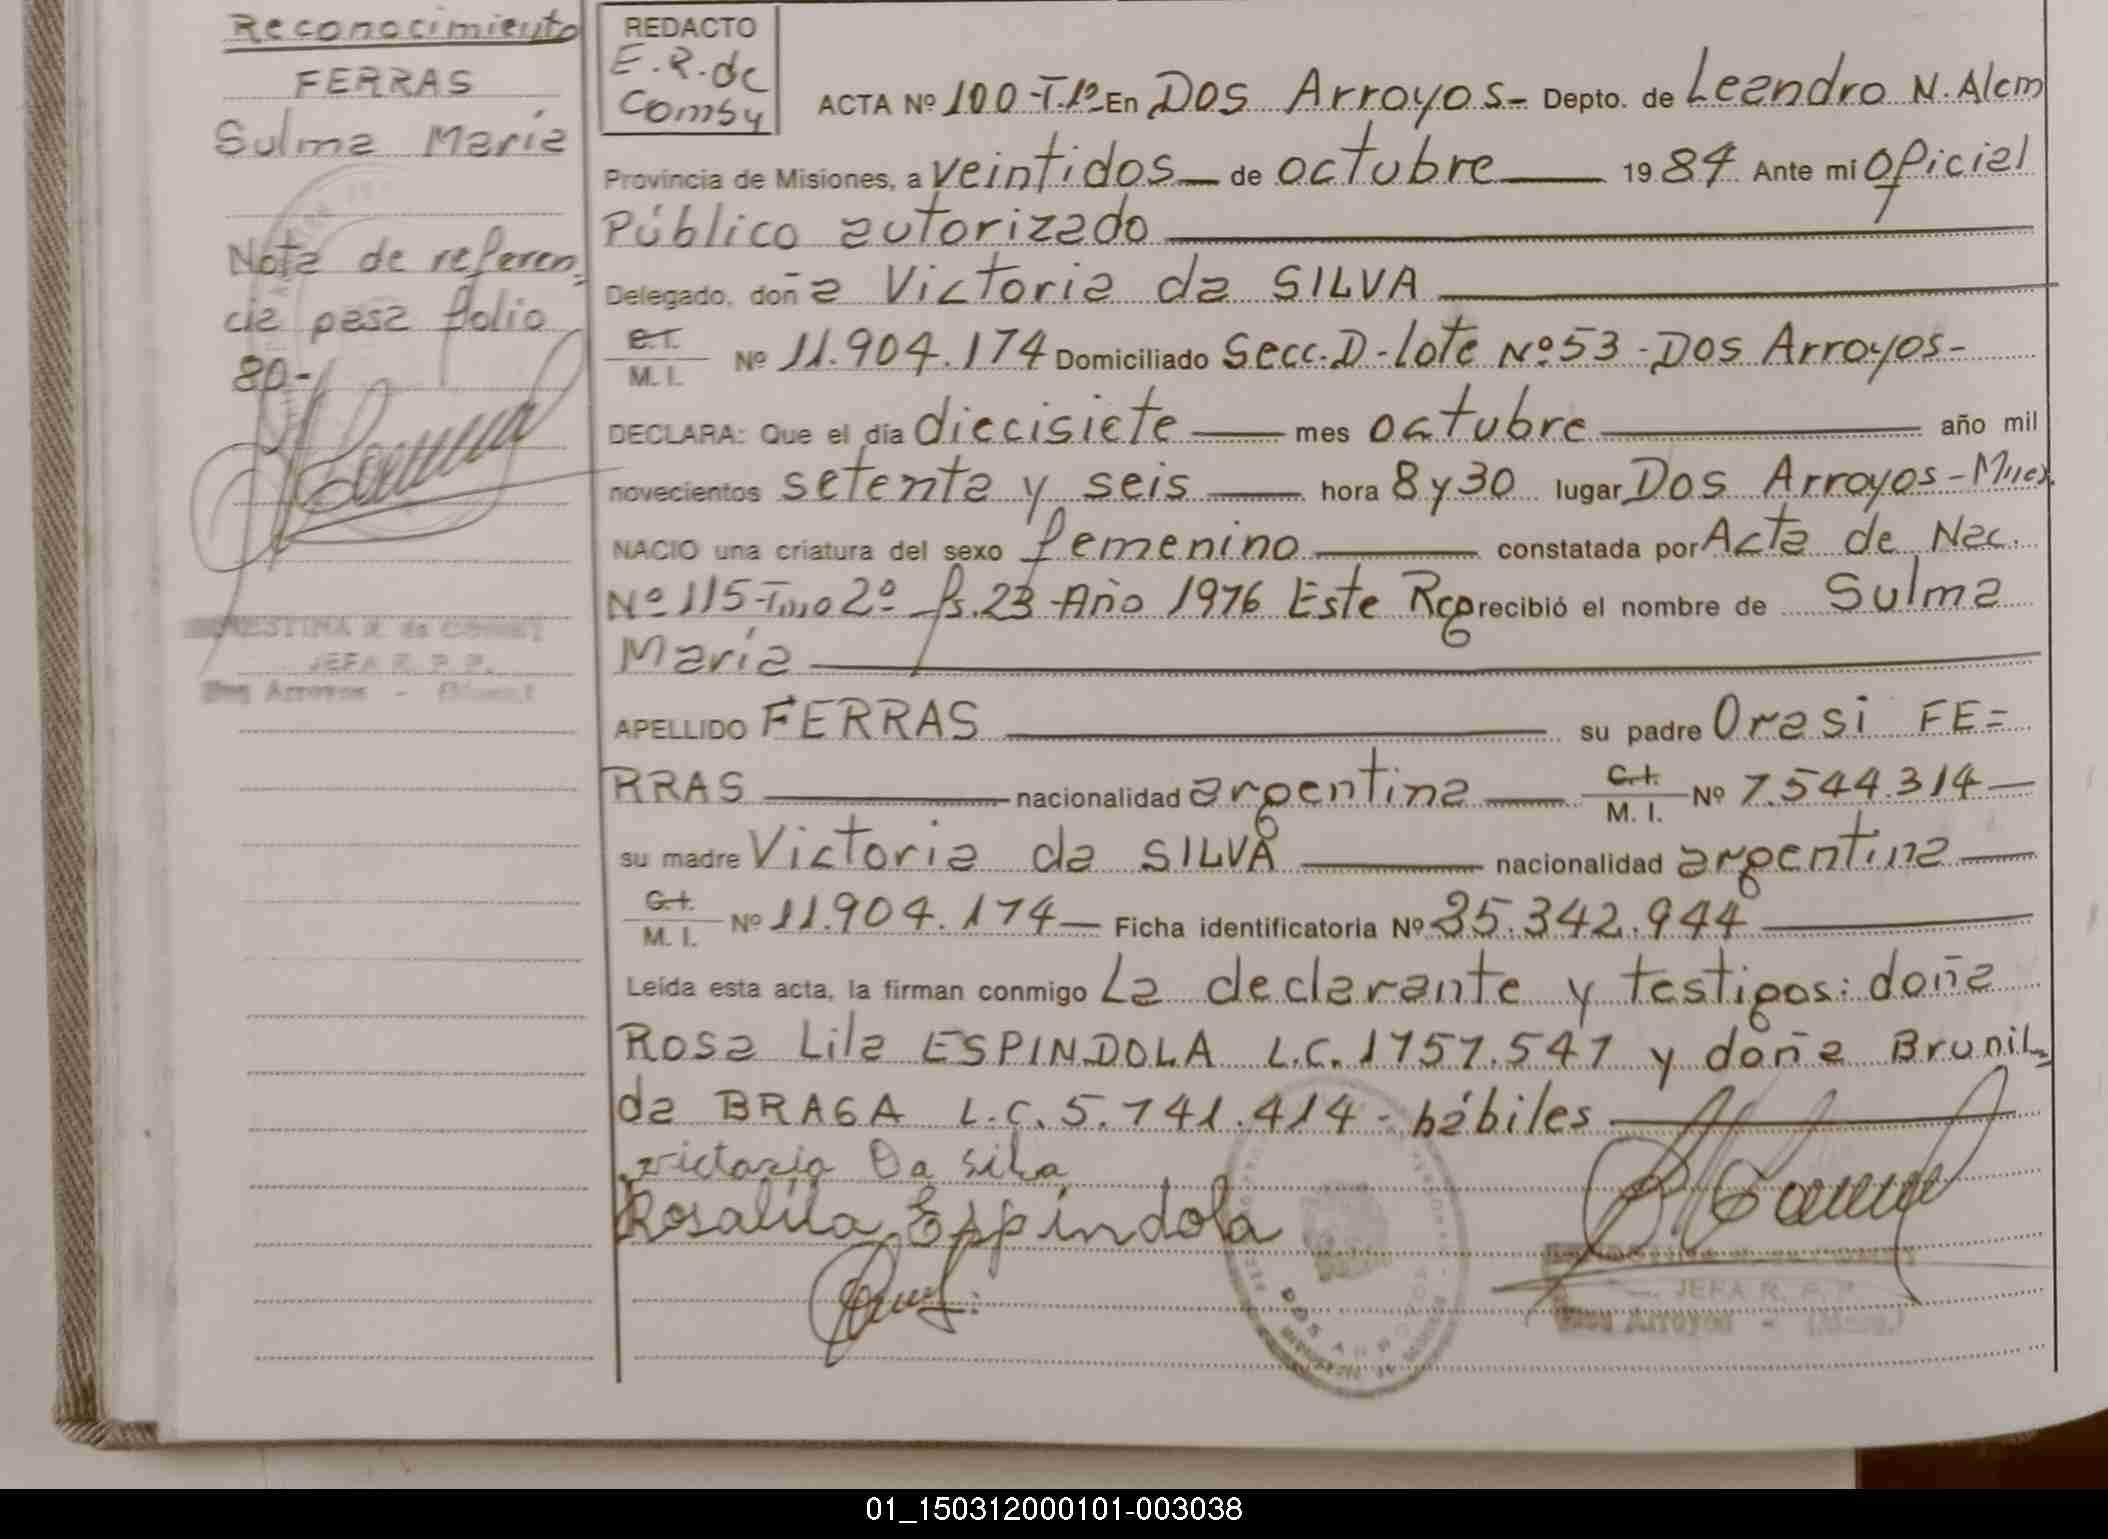 Reconocimiento
FERRAS
Sulma María
Nota de referen,
cia pasa folio
80-
JEFA R. P. P.
Dos Arroyos - (Misnes.)
REDACTO
E.R.de
Comsy
ACTA Nº 100-T.1º En Dos Arroyos- Depto. de Leandro N. Alem
Provincia de Misiones, a veintidos de octubre 1984 Ante mi oficial
Público autorizado
Delegado, doña Victoria da SILVA
C.I. M. I. Nº 11.904.174 Domiciliado Secc.D-lote Nº53-Dos Arroyos-
DECLARA: Que el día diecisiete mes octubre año mil
novecientos setenta y seis hora 8 y 30 lugar Dos Arroyos-
NACIO una criatura del sexo femenino constatada por Acta de Nac.
Nº 115-Tmo 2º fs.23-Año 1976 Este Reg recibió el nombre de Sulma
María
APELLIDO FERRAS su padre Orasi FE=
RRAS nacionalidad argentina C.I. M. I. Nº 7.544.314
su madre Victoria da SILVA nacionalidad argentina
C.I. M. I. Nº 11.904.174 Ficha identificatoria Nº 35.342.944
Leída esta acta, la firman conmigo La declarante y testigos: doña
Rosa Lila ESPINDOLA L.C. 1757.547 y doña Brunil=
da BRAGA L.C. 5.741.414- hábiles
victoria Da silva
Rosalila Espíndola
DOS ARROYOS
JEFA R. P. P.
Dos Arroyos - (Mnes.)
01_150312000101-003038